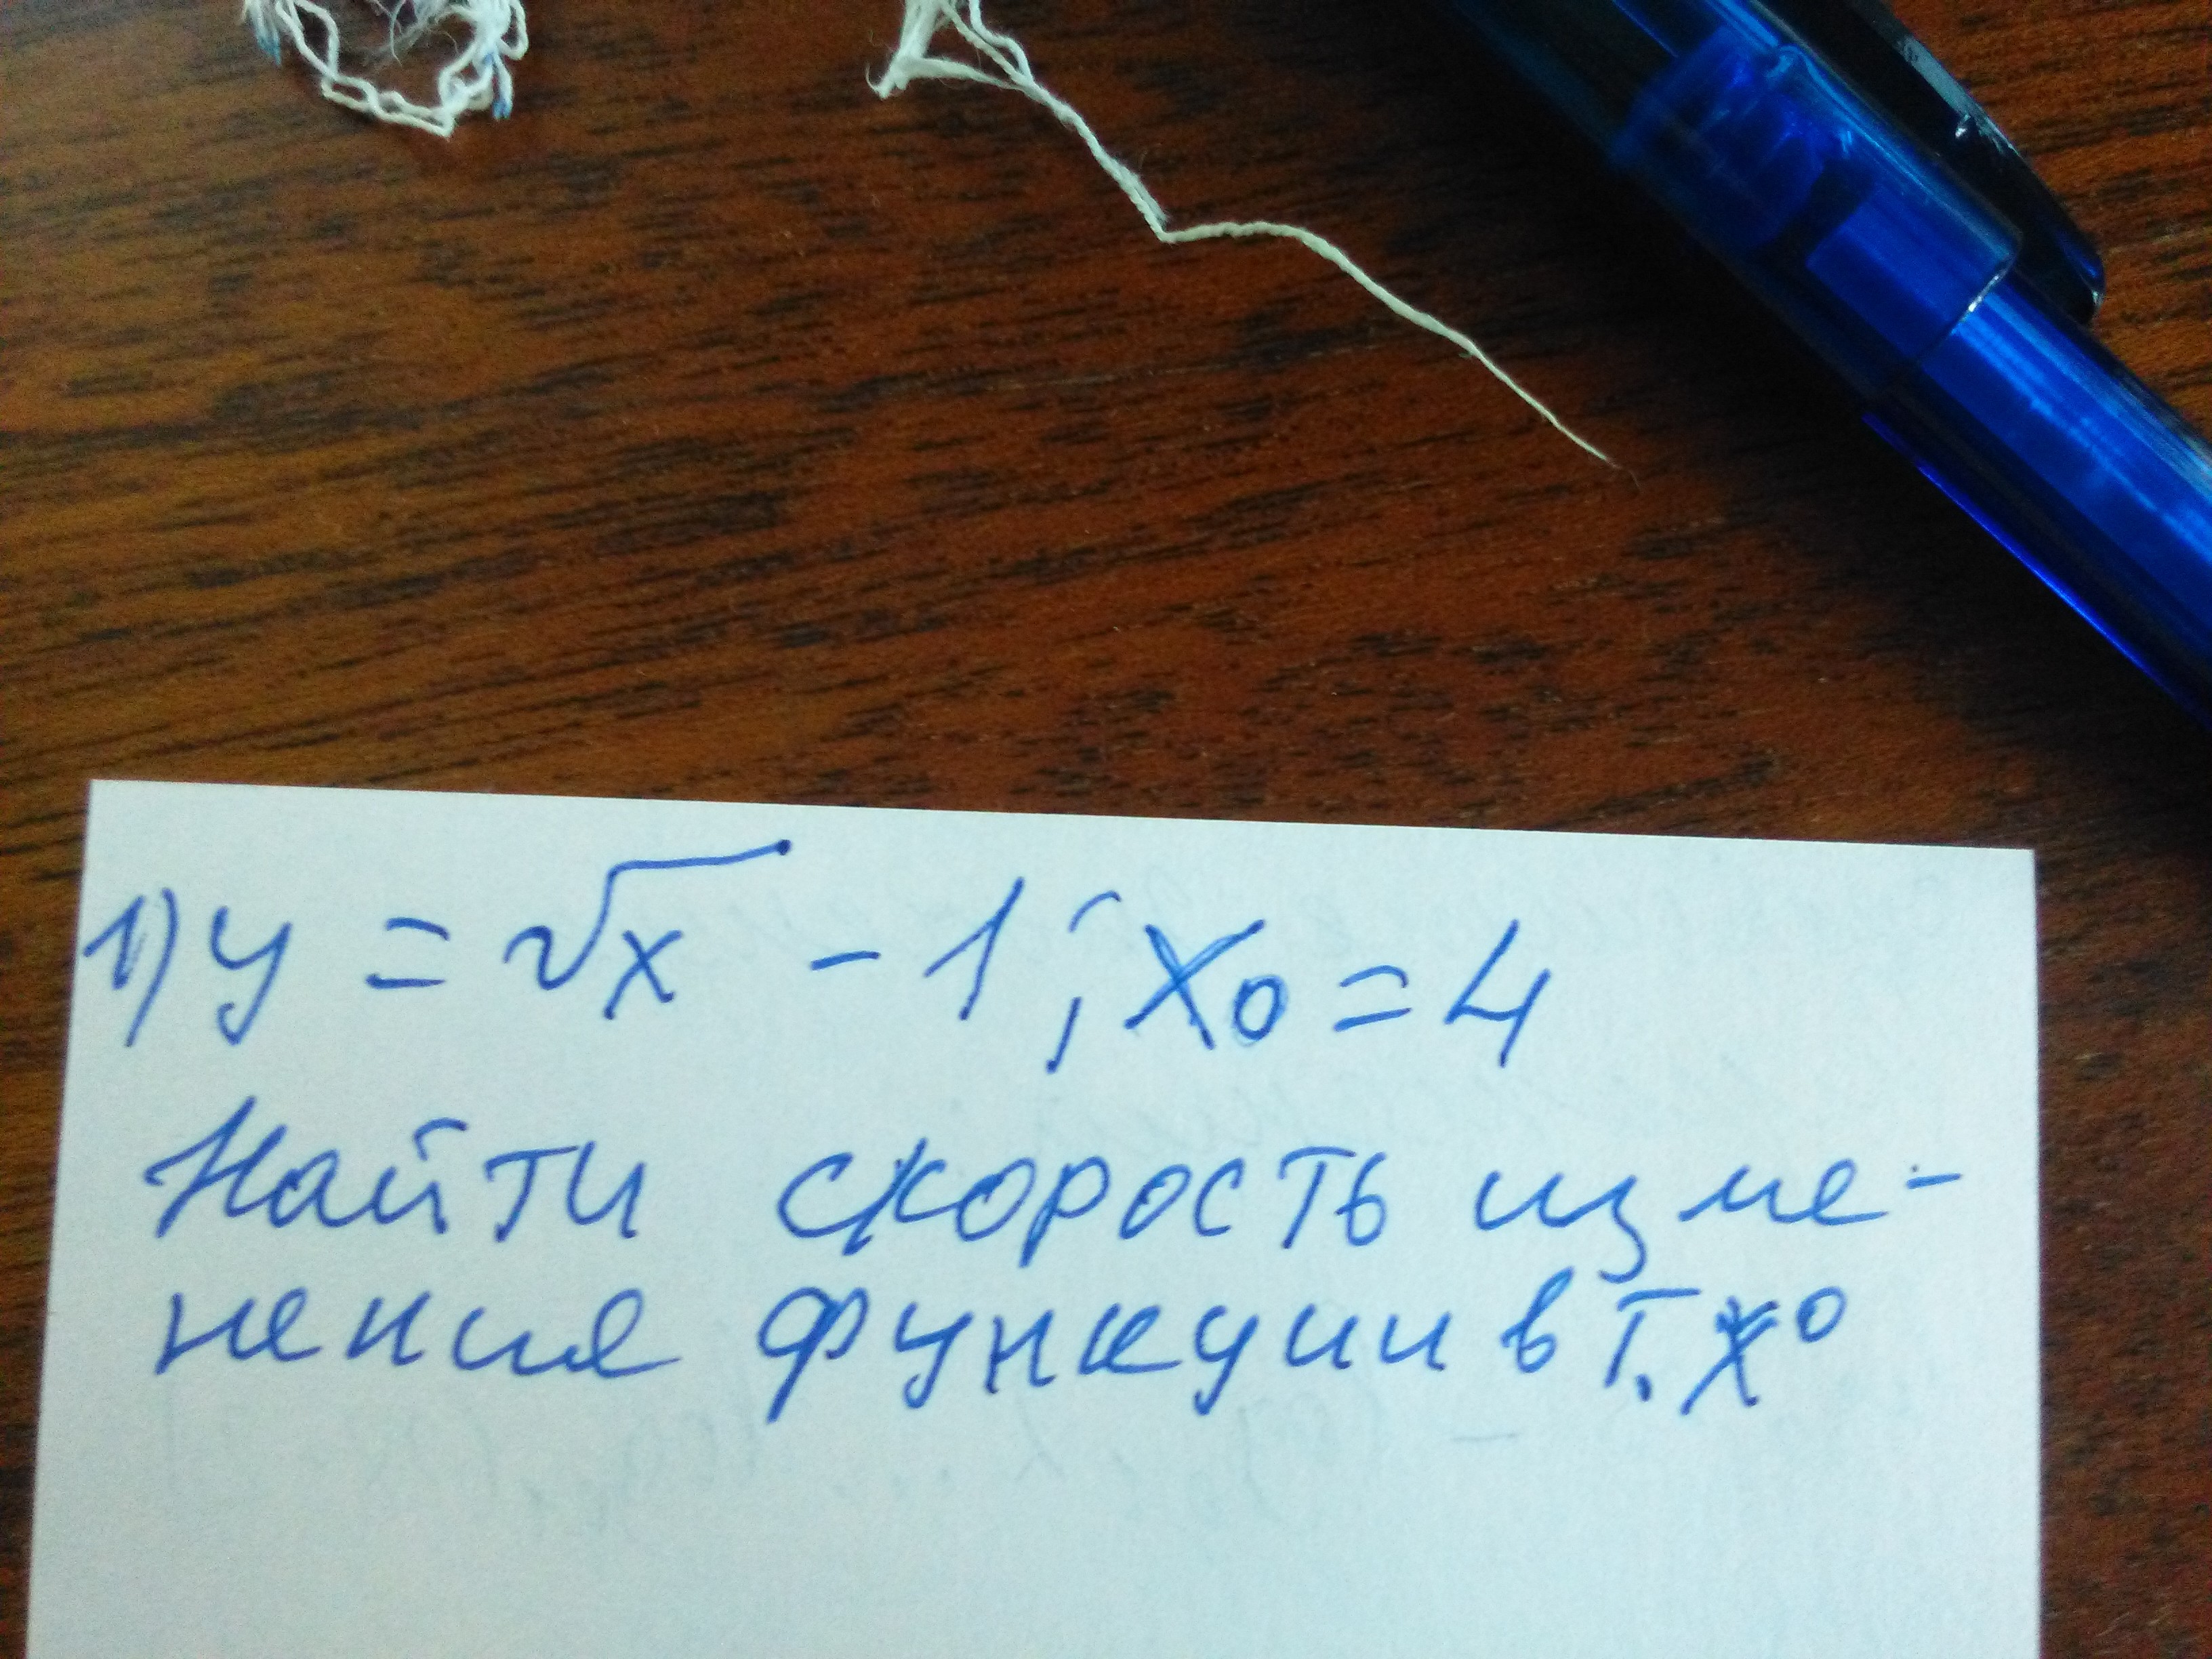 1) y = √x - 1; x₀ = 4
Найти скорость изме-
нения функции в т. x⁰